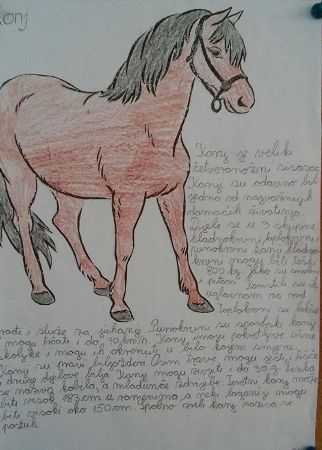 Konj
Konj je veliki
četveronožni sisavac
Konj su odavno bili
jedno od najvažnijih
domaćih životinja.
Dijele se u 3 skupine:
hladnokrvni, toplokrvni i
punokrvni konj. Hladno
krvni mogu biti teški
800 kg. Jako su snažni
Koristili su ih
uglavnom na rad
Toplokrvni su lakše
građe i služe za jahanje. Punokrvni su sportski konj
mogu trčati i do 70 km/h. Konj mogu pokretne usne
školjke i mogu ih okrenuti u bilo kojem smjeru.
Konj su pravi biljožderi. Osim trave mogu jesti i lišće
i druge djelove bilja. Konj mogu živjeti i do 30 g. Ženka
se naziva kobila, a mladunče ždrijebe. Teretni konj može
biti visok 183 cm u ramenima, a neki lagani mogu
biti visoki oko 150 cm. Spolno zreli konj naziva se
pastuh